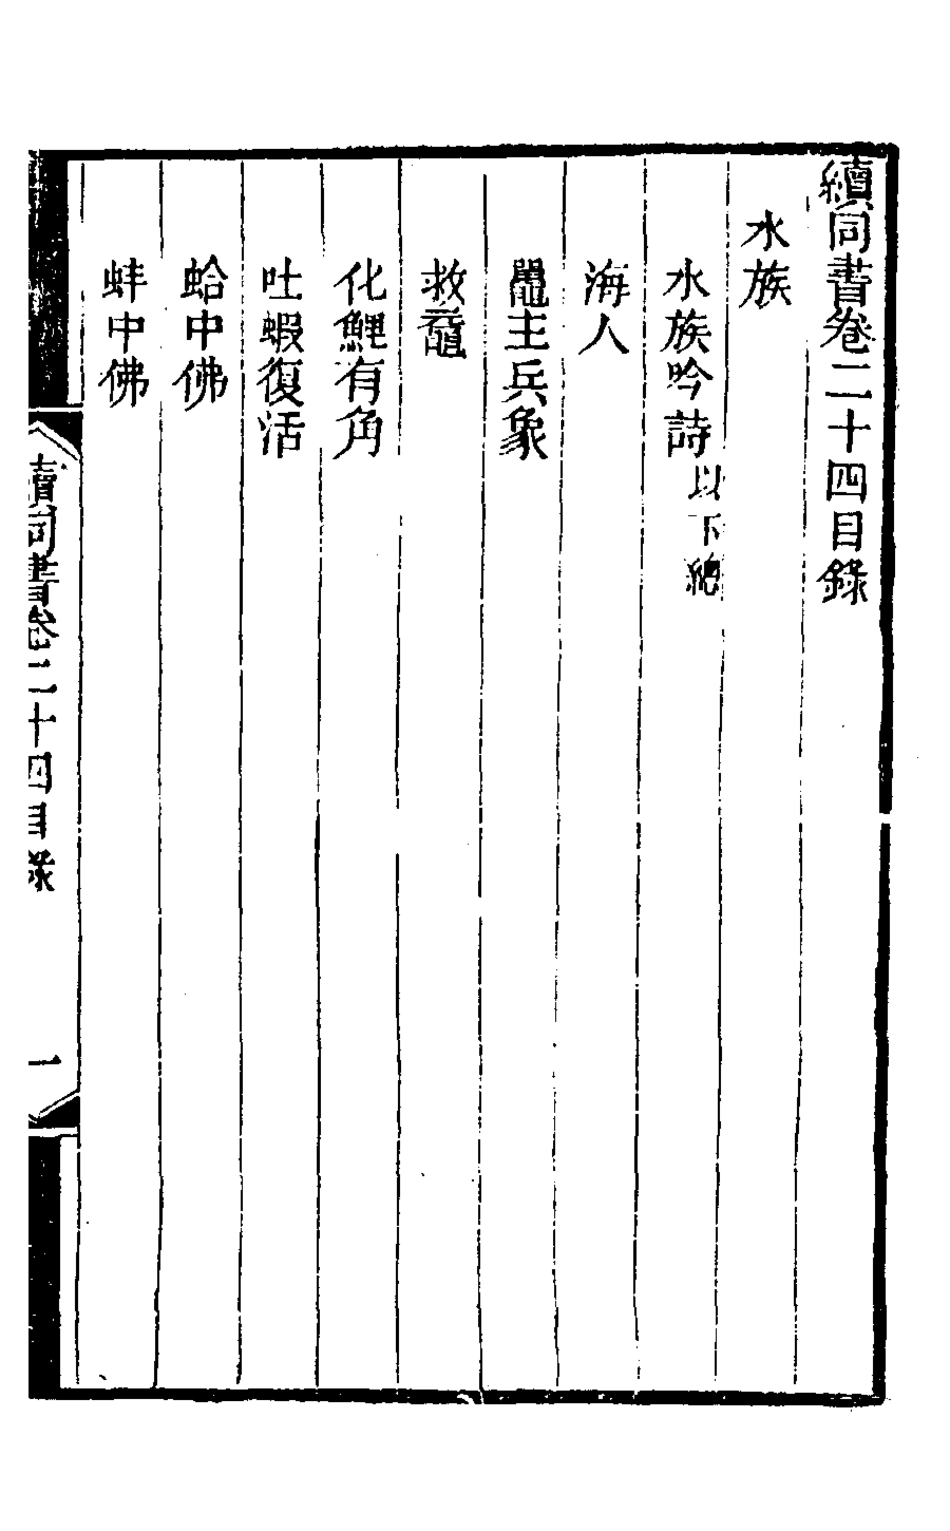 續同書卷二十四目錄
水族
水族吟詩以下總
海人
鼉主兵象
救黿
化鯉有角
吐蝦復活
蛤中佛
蚌中佛
續同書卷二十四目錄
一